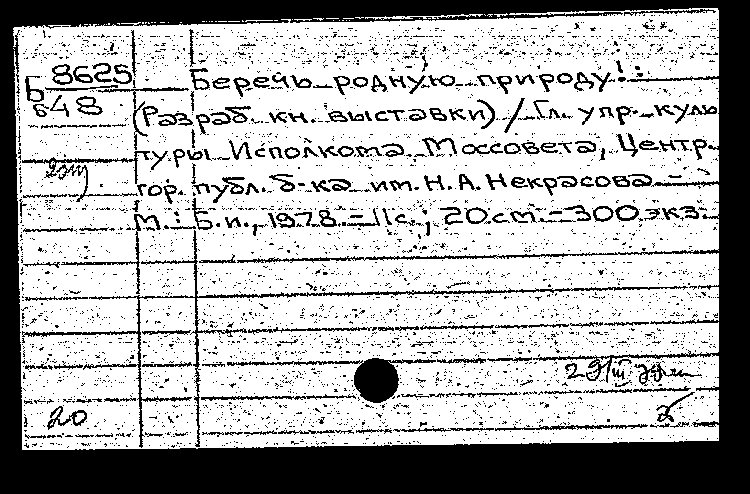 Б 8625
648
Беречь родную природу! :
(Разраб. кн. выставки) / Гл. упр. куль
туры Исполкома Моссовета, Центр.
гор. публ. б-ка им. Н. А. Некрасова. -
М. : Б. и., 1978. - 11 с. ; 20 см. - 300 экз.
20